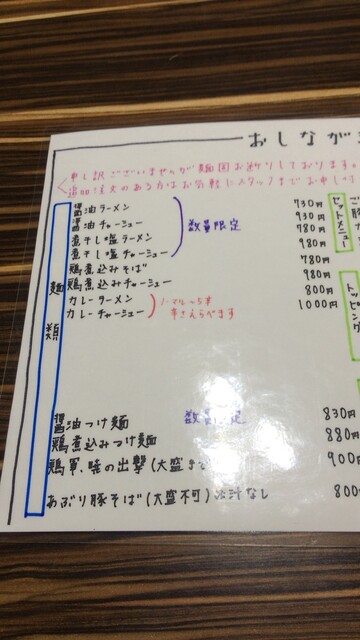 おしなが
申し訳ございませんが麺固お断りしております。
追加注文のある方はお気軽にスタッフまでお申し
麺類
醤油ラーメン 730円
醤油チャーシュー 930円
煮干し塩ラーメン 780円
煮干し塩チャーシュー 980円
数量限定
鶏煮込みそば 780円
鶏煮込みチャーシュー 980円
カレーラーメン 800円
カレーチャーシュー 1000円
ノーマル〜5辛
辛さえらべます
セットメニュー
トッピング
醤油つけ麺 数量限定 830
鶏煮込みつけ麺 880
鶏軍、暁の出撃(大盛 900
あぶり豚そば(大盛不可)※汁なし 800